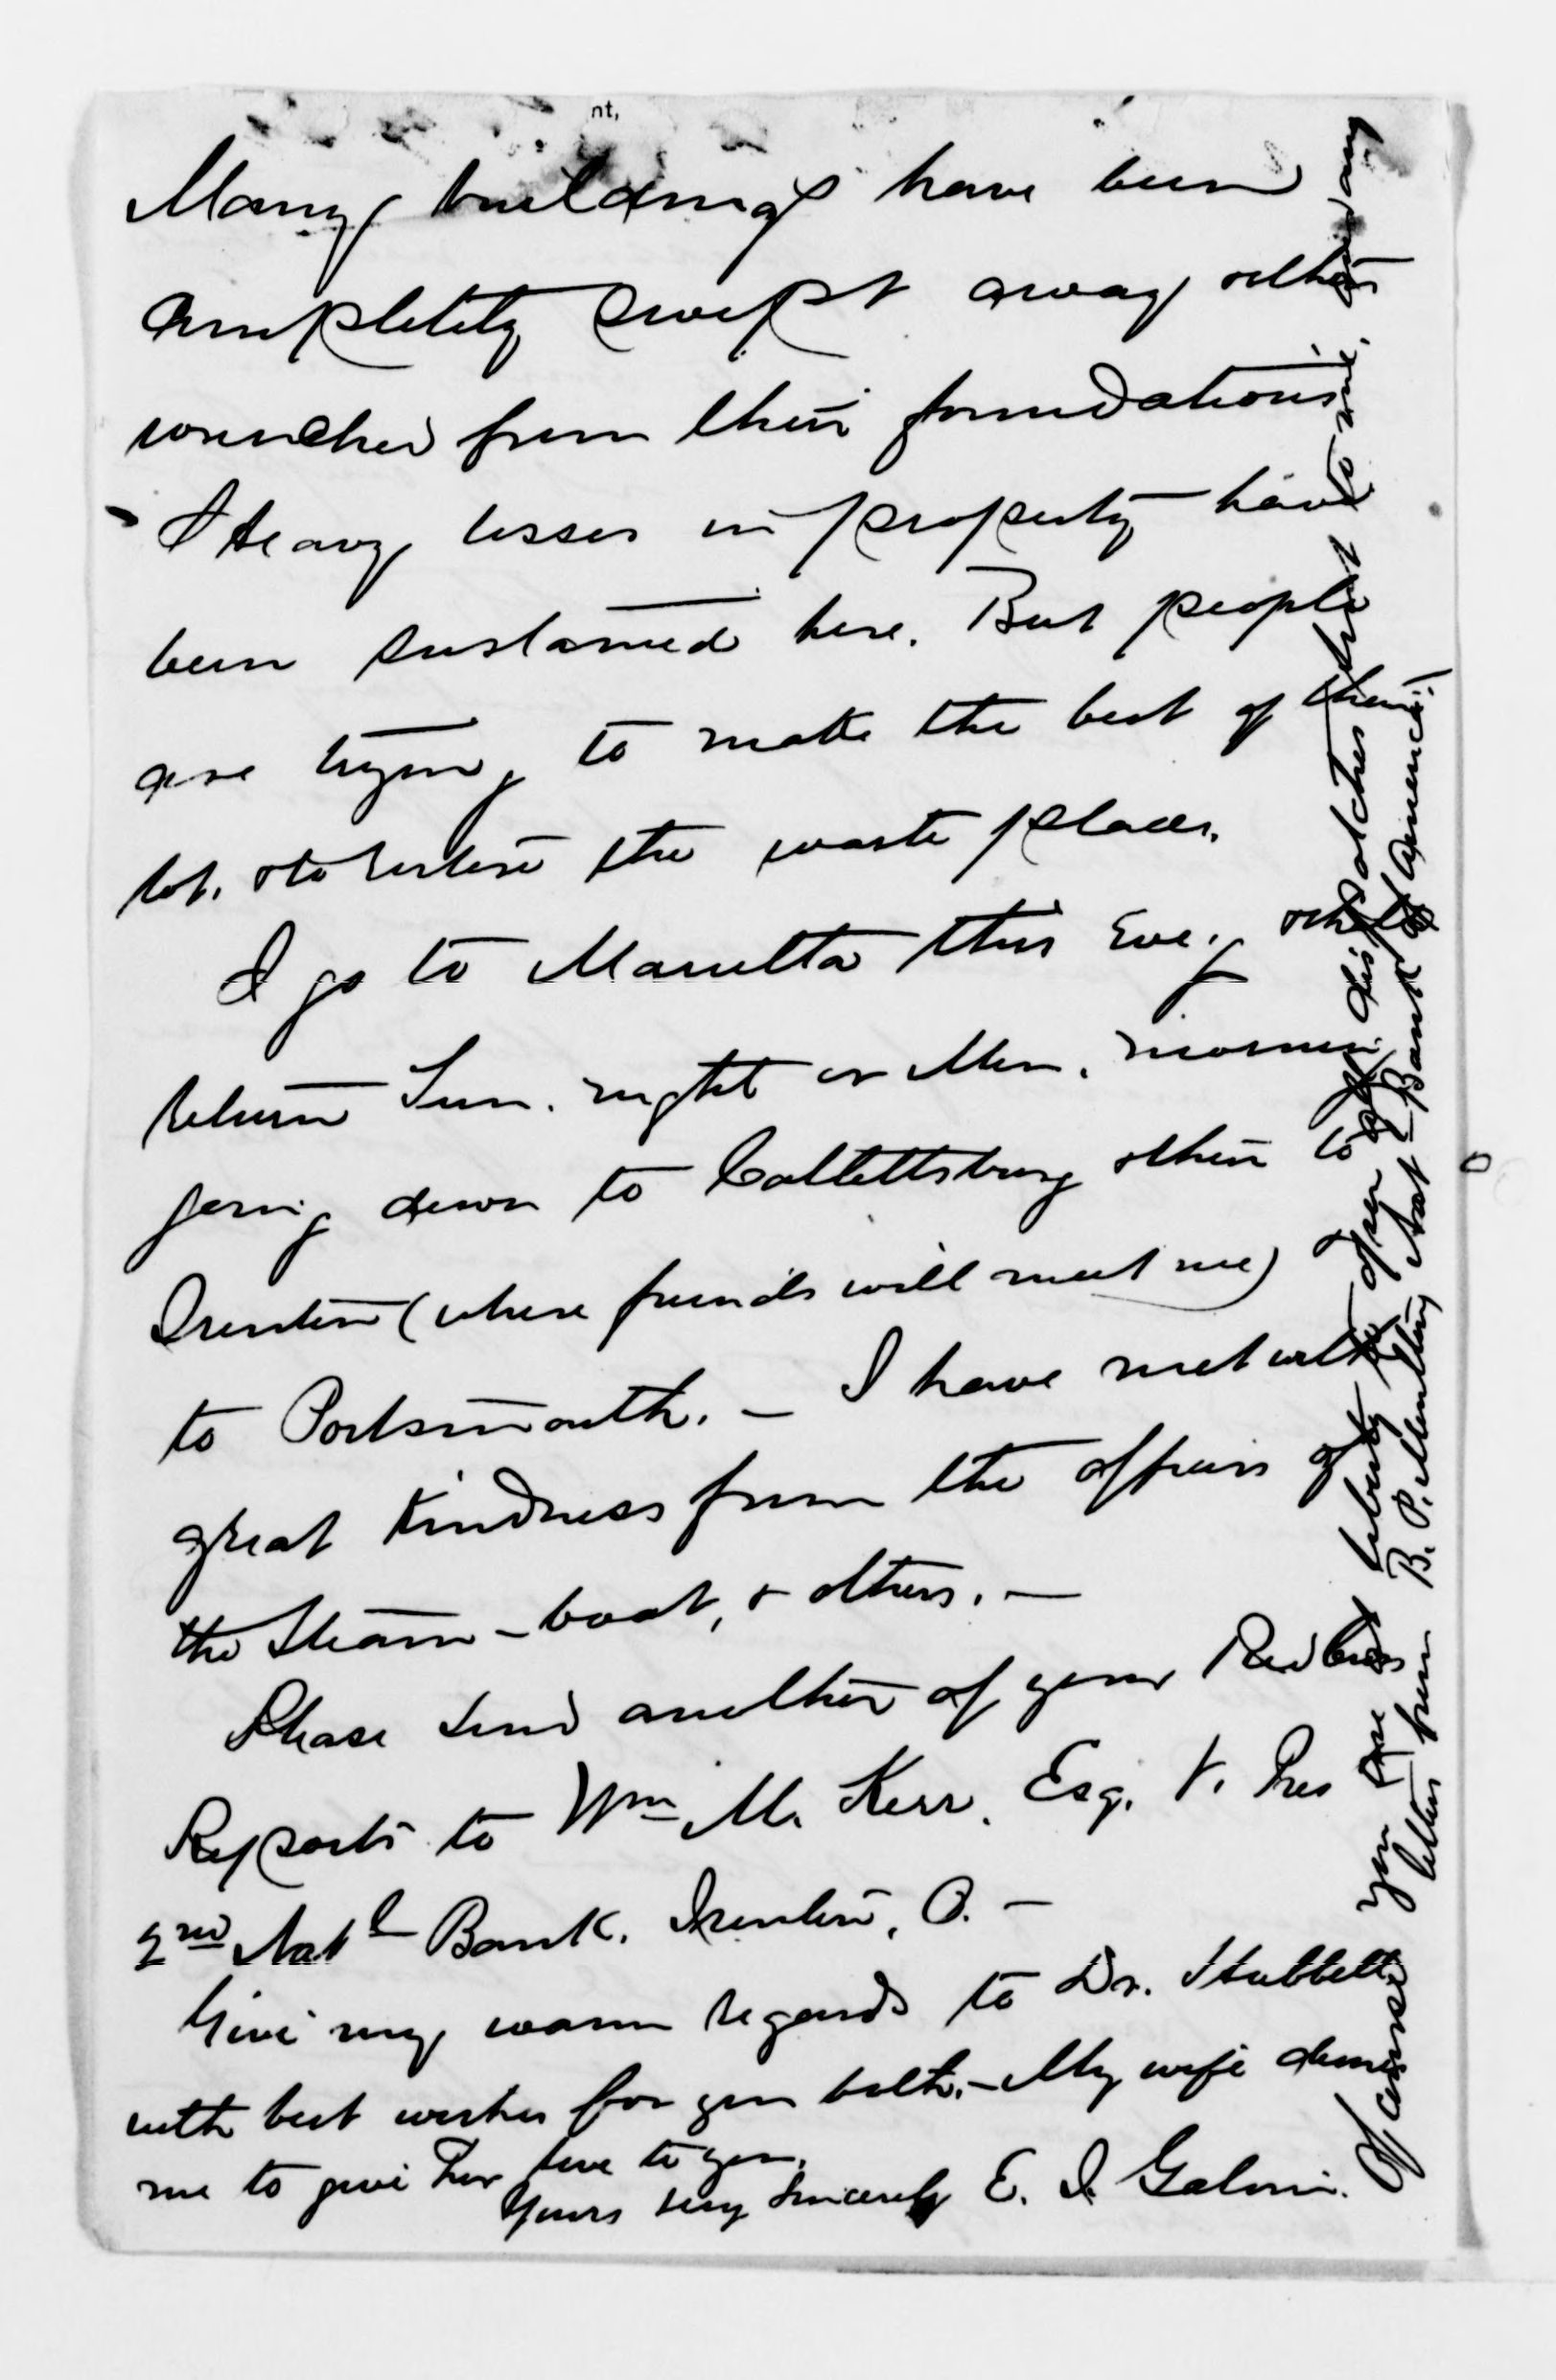 nt,
Many buildings have been
completely swept away others
wrenched from their foundations
Heavy losses in property have
been sustained here. But people
are trying to make the best of their
lot. & to restore the waste places.
I go to Marietta this Eve.g &
return Sun. night or Mon. morning
going down to Catlettsburg & then to
Ironton (where friends will meet me) &
to Portsmouth. — I have met with
great kindness from the officers of
the Steam-boat, & others. —
Please send another of your Red Cross
Reports to Wm M. Kerr. Esq. V. Pres
2nd Natl Bank. Ironton, O. —
Give my warm regards to Dr. Hubbell
with best wishes for you both. — My wife desires
me to give her love to you.
Yours very Sincerely E. I. Galvin.
Of course you are at liberty to open any dispatches sent to me, and any
letters from B. P. Natl Bank of America.